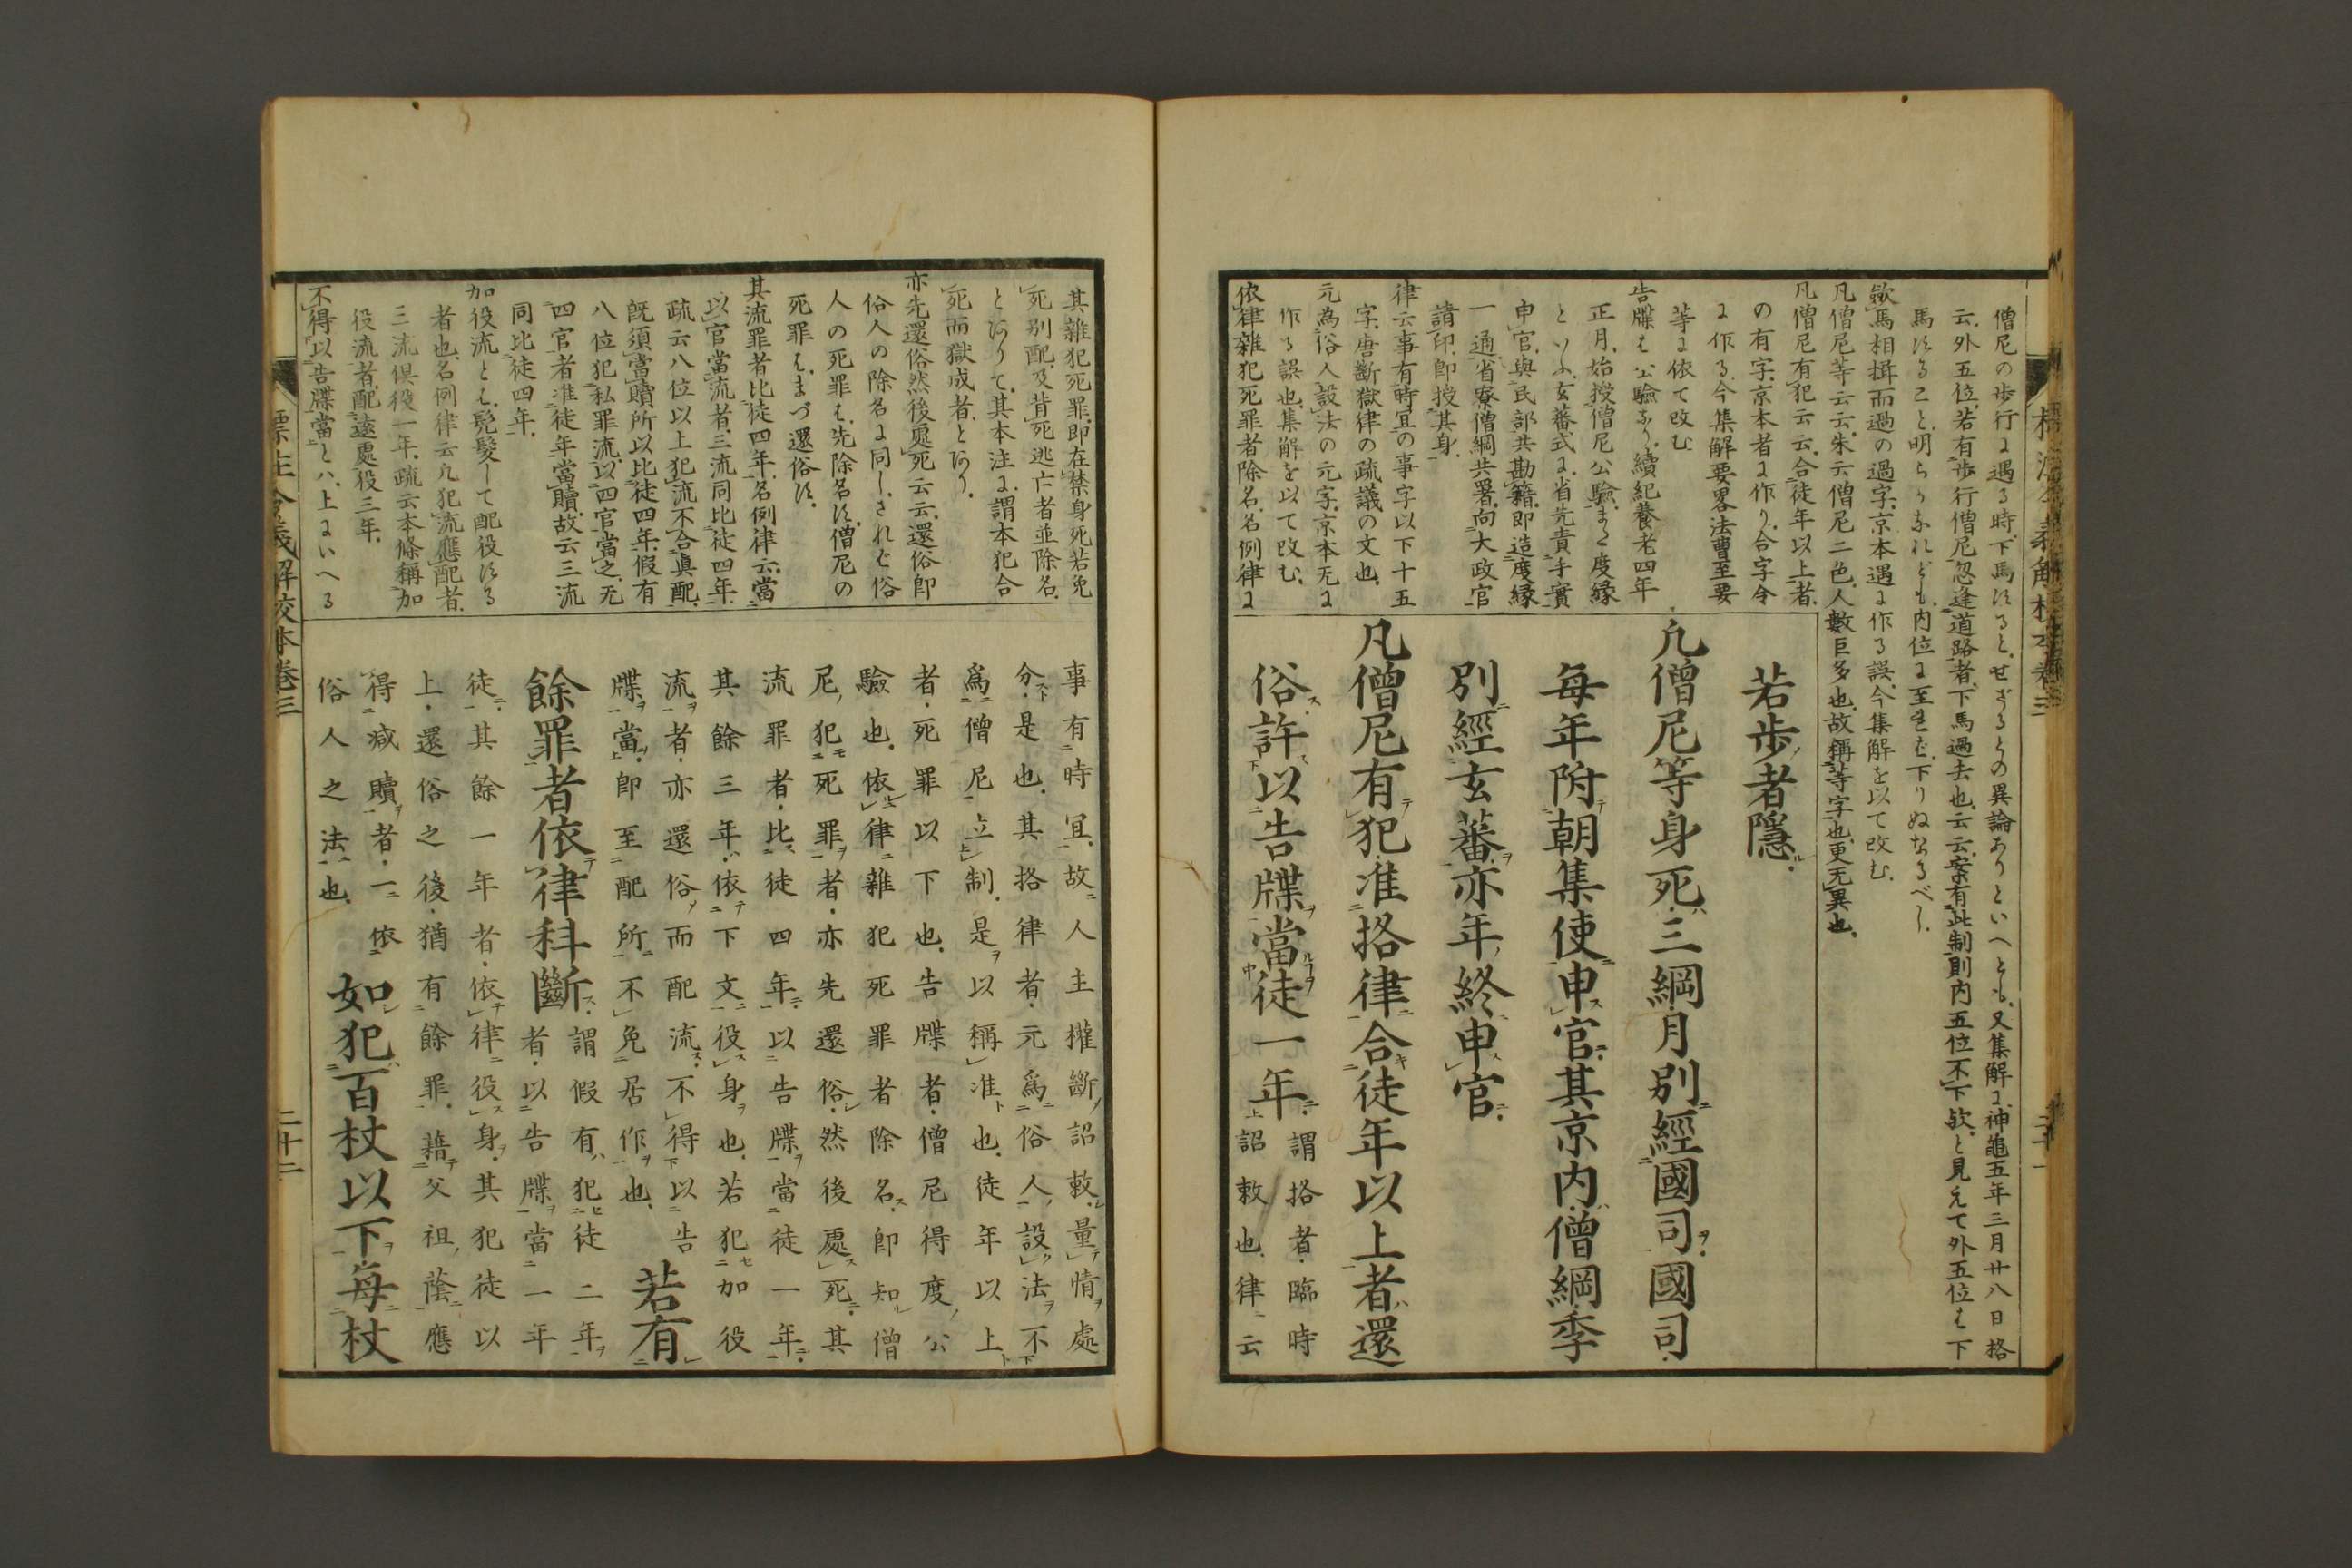 標注令義解校本卷三
僧尼の歩行に遇る時下馬するとせざるとの異論ありといへとも又集解に神龜五年三月廿八日格
云外五位若有歩行僧尼忽逢道路者下馬過去也云云案有此制則内五位不下歟と見えて外五位は下
馬すること明らかなれども内位に至ては下りぬなるべし
歟馬相揖而過の過字京本遇に作る誤今集解を以て改む
凡僧尼等云云朱云僧尼二色人數巨多也故稱等字也更无異也
凡僧尼有犯云云合徒年以上者
の有字京本者に作り合字令
に作る今集解要畧法曹至要
等に依て改む
告牒は公驗なり續紀養老四年
正月始授僧尼公驗また度縁
といふ玄蕃式に省先責手實
申官與民部共勘籍即造度縁
一通省寮僧綱共署向大政官
請印即授其身
律云事有時宜の事字以下十五
字唐斷獄律の疏議の文也
元為俗人設法の元字京本无に
作る誤也集解を以て改む
依律雜犯死罪者除名名例律に
若歩者隱
凡僧尼等身死三綱月別經國司國司
每年附朝集使申官其京内僧綱季
別經玄蕃亦年終申官
凡僧尼有犯准格律合徒年以上者還
俗許以告牒當徒一年謂格者臨時
詔敕也律云
其雜犯死罪即在禁身死若免
死別配及背死逃亡者並除名
とありて其本注に謂本犯合
死而獄成者とあり
亦先還俗然後處死云云還俗即
俗人の除名に同しされど俗
人の死罪は先除名す僧尼の
死罪はまづ還俗す
其流罪者比徒四年名例律云當
以官當流者三流同比徒四年
疏云八位以上犯流不合眞配
既須當贖所以比徒四年假有
八位犯私罪流以四官當之无
四官者准徒年當贖故云三流
同比徒四年
加役流とは髡髮して配役する
者也名例律云凡犯流應配者
三流倶役一年疏云本條稱加
役流者配遠處役三年
不得以告牒當とハ上にいへる
事有時宜故人主權斷詔敕量情處
分是也其格律者元爲俗人設法不
爲僧尼立制是以稱准也徒年以上
者死罪以下也告牒者僧尼得度公
驗也依律雜犯死罪者除名即知僧
尼犯死罪者亦先還俗然後處死其
流罪者比徒四年以告牒當徒一年
其餘三年依下文役身也若犯加役
流者亦還俗而配流不得以告
牒當即至配所不免居作也若有
餘罪者依律科斷謂假有犯徒二年
者以告牒當一年
徒其餘一年者依律役身其犯徒以
上還俗之後猶有餘罪藉父祖蔭應
得減贖者一依
俗人之法也如犯百杖以下每杖
標注令義解校本卷三
二十二